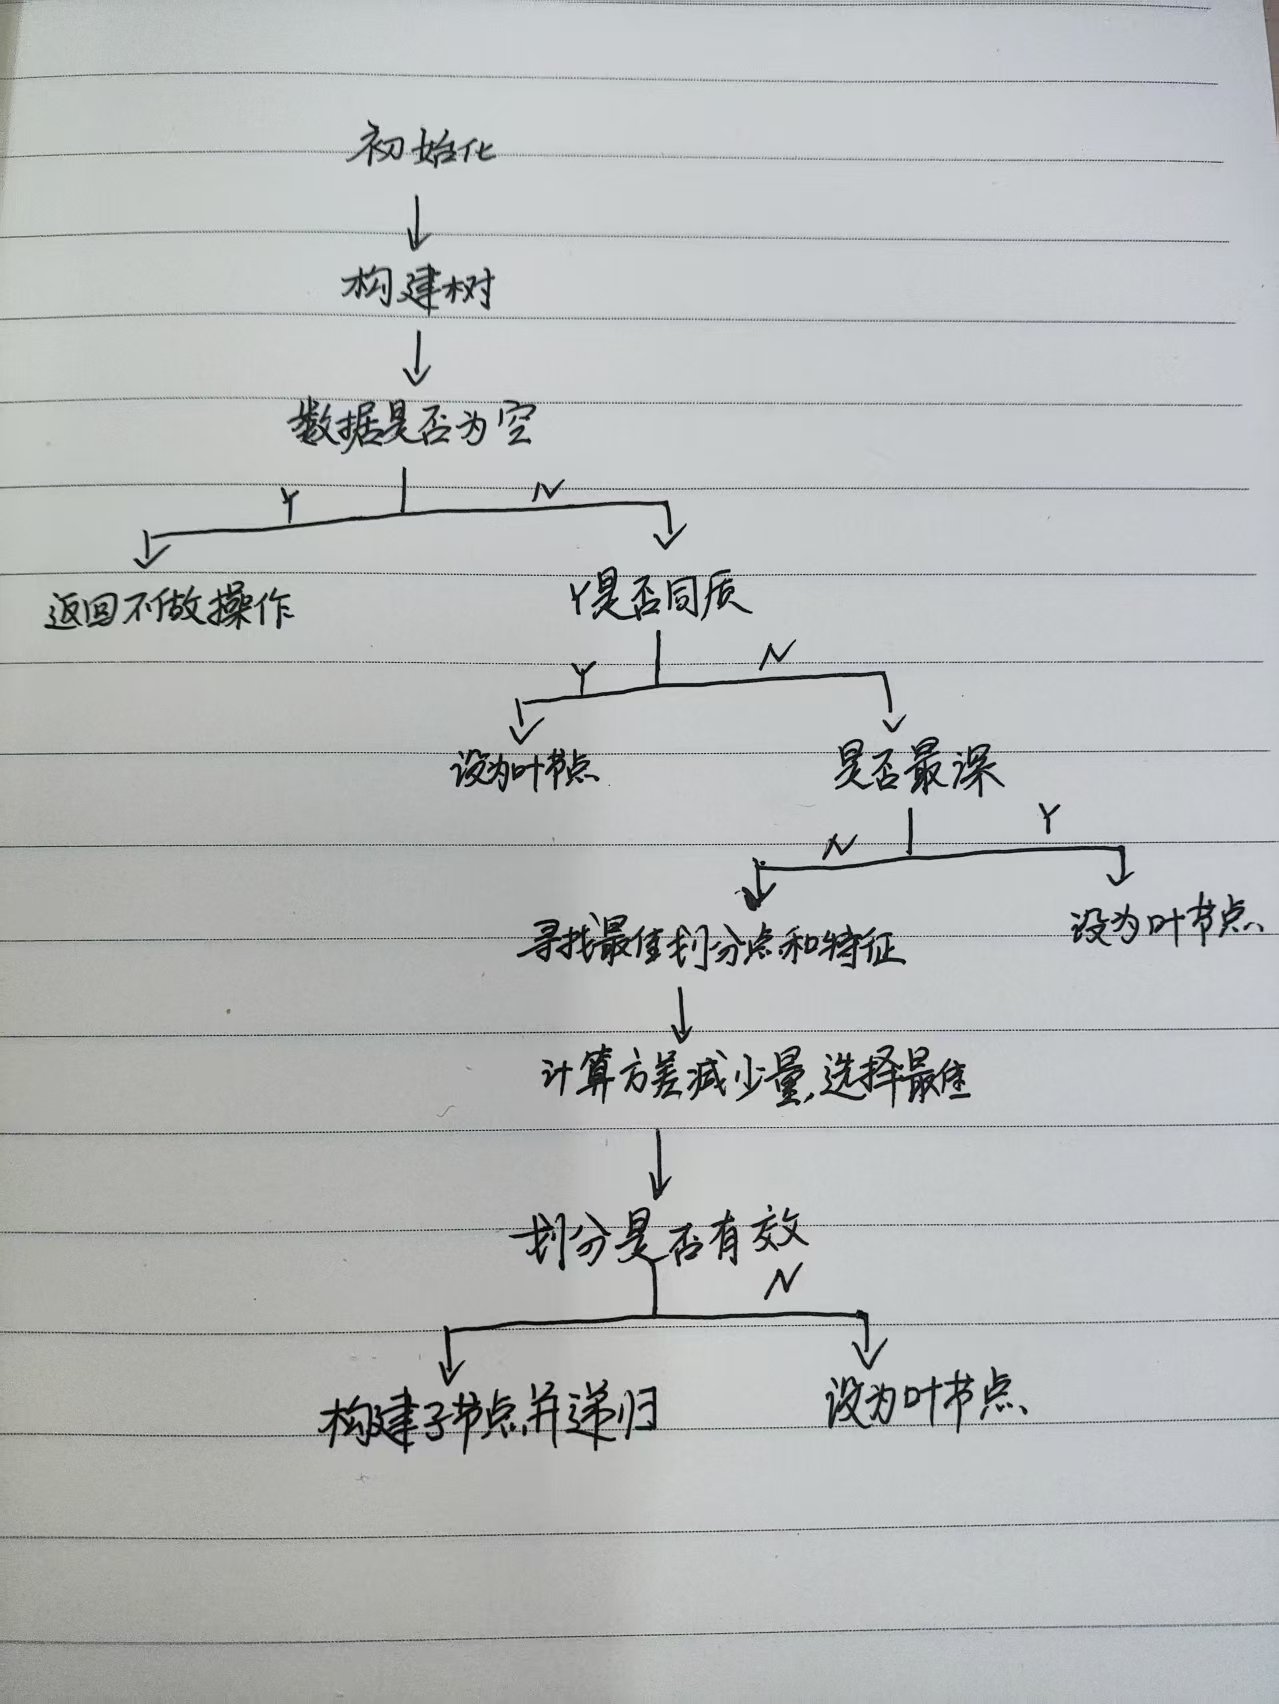 初始化
构建树
数据是否为空
Y
N
返回不做操作
Y是否同质
Y
N
设为叶节点
是否最深
N
Y
寻找最佳划分点和特征
设为叶节点
计算方差减少量,选择最佳
划分是否有效
N
构建子节点,并递归
设为叶节点